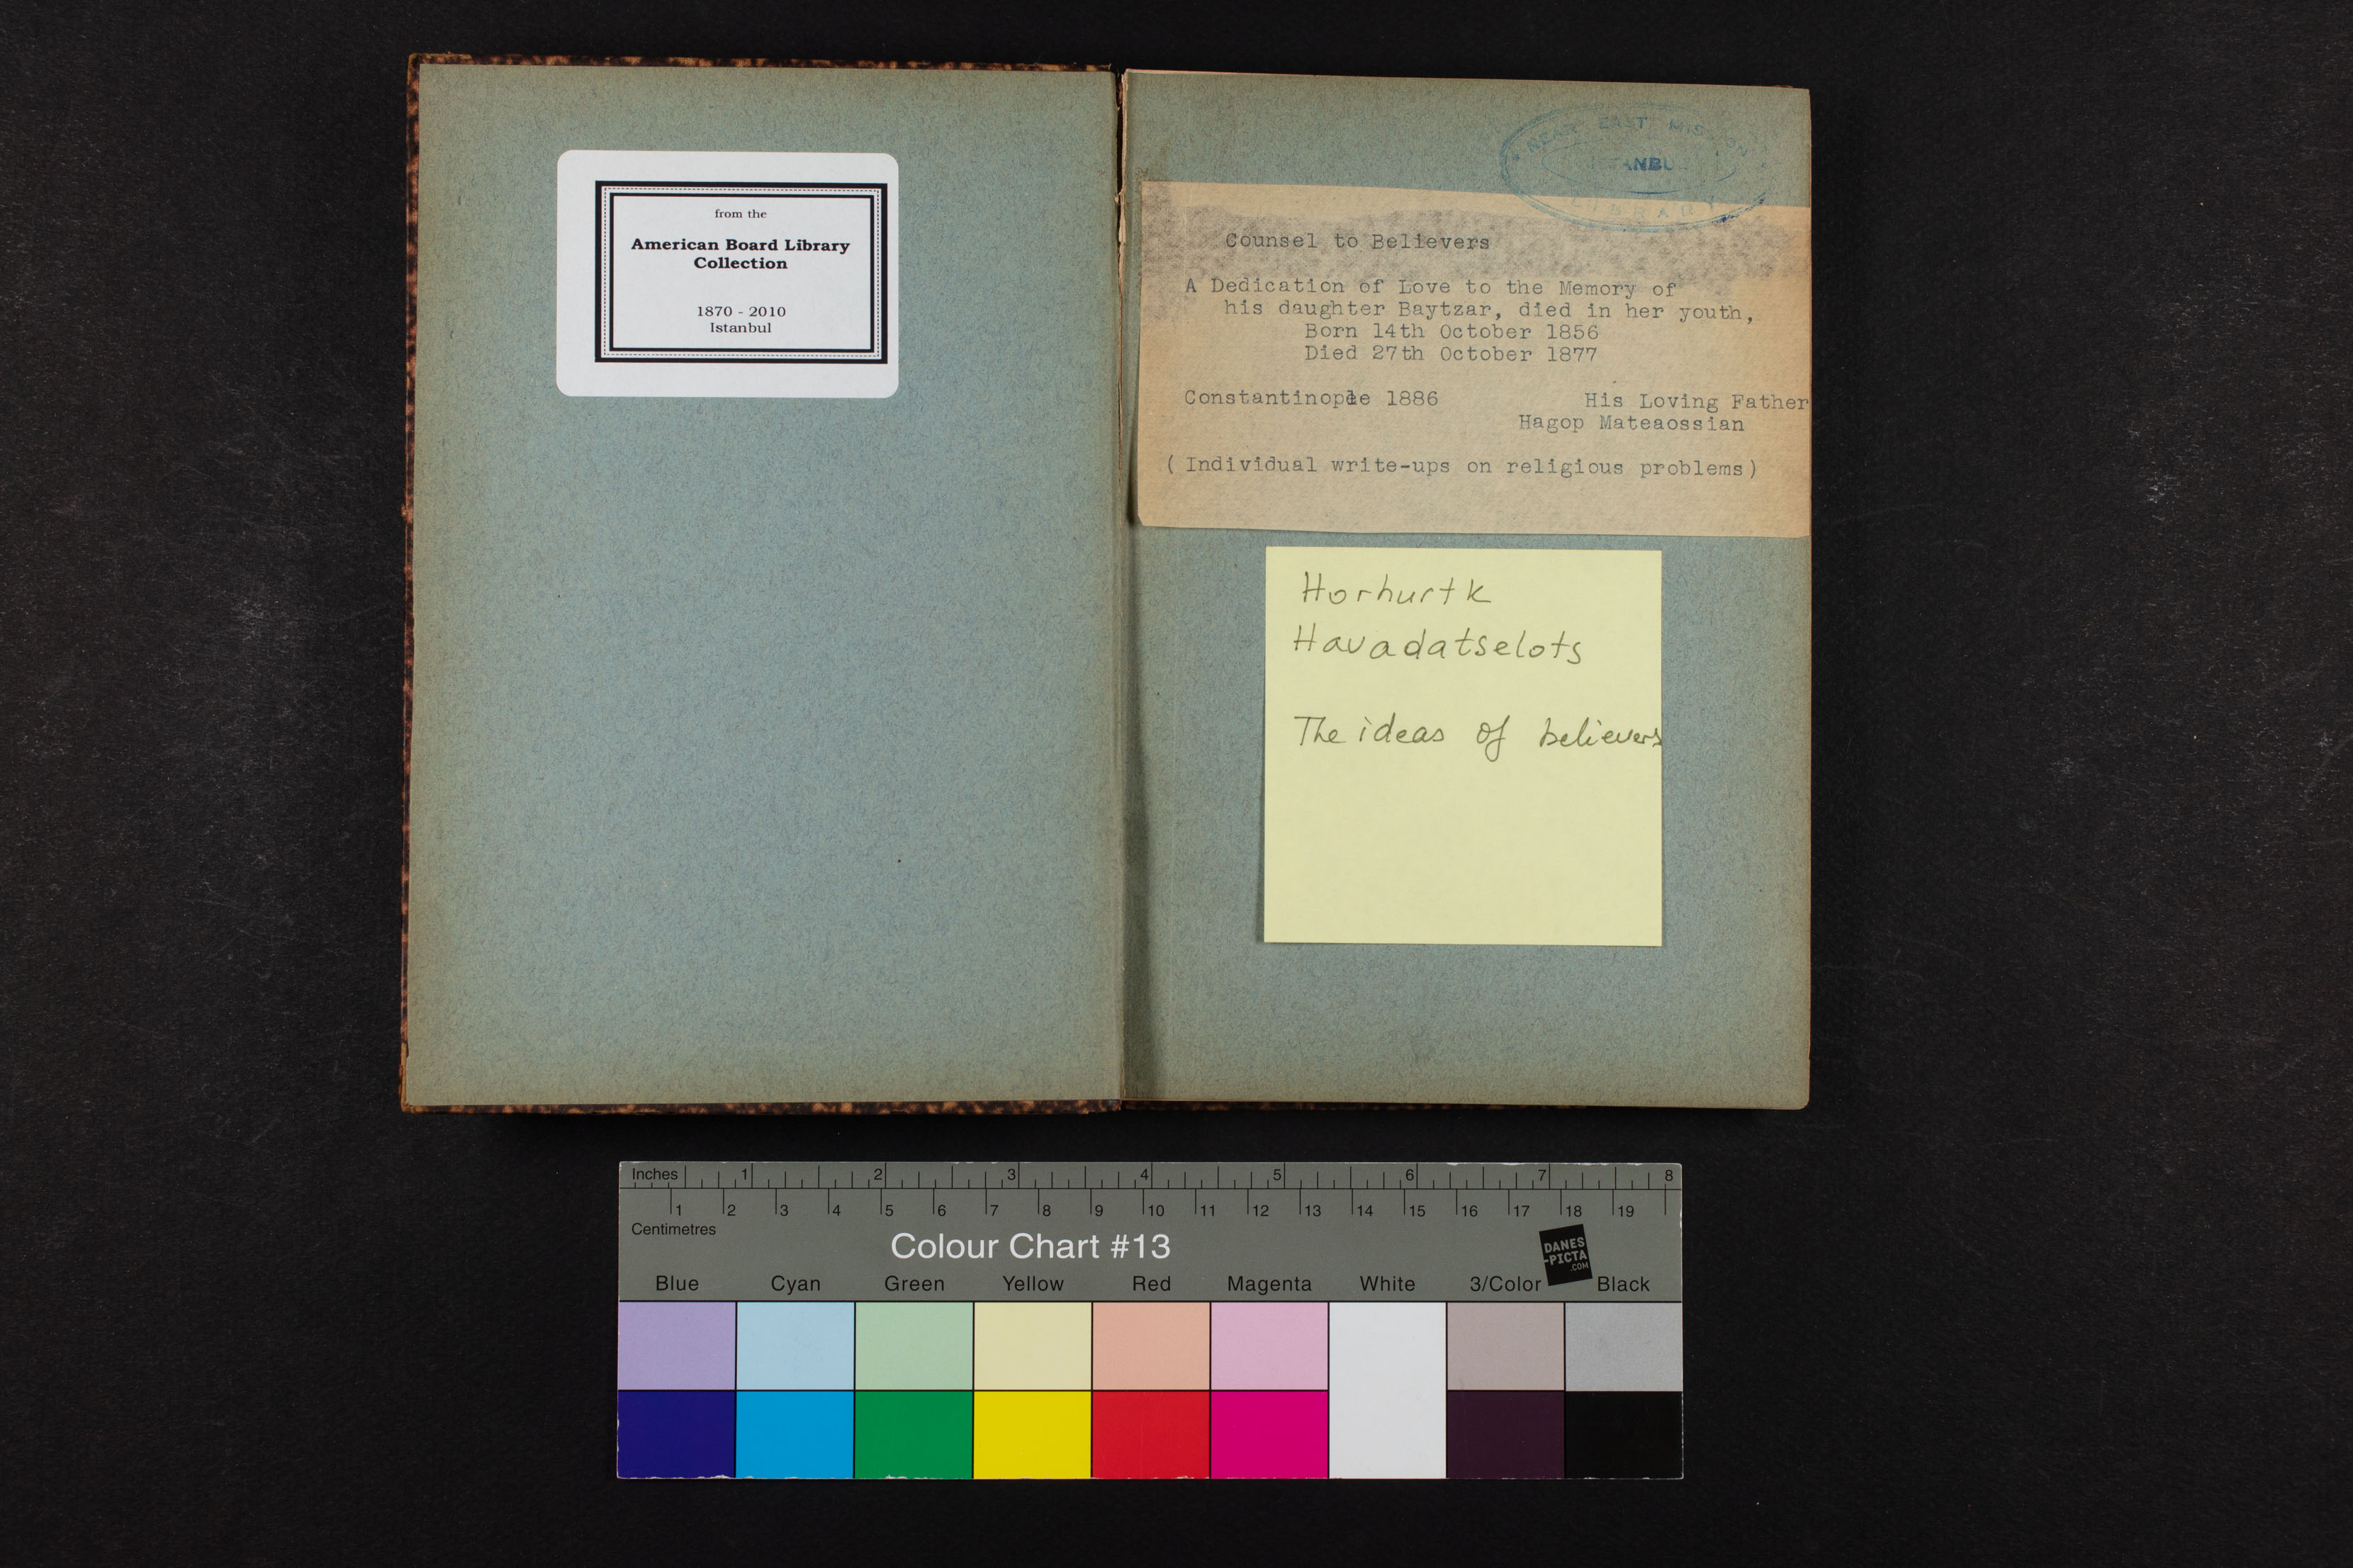 from the
American Board Library
Collection
1870 - 2010
Istanbul
NEAR EAST MISSION
ISTANBUL
LIBRARY
Counsel to Believers
A Dedication of Love to the Memory of
his daughter Baytzar, died in her youth,
Born 14th October 1856
Died 27th October 1877
Constantinople 1886 His Loving Father
Hagop Mateaossian
( Individual write-ups on religious problems)
Horhurtk
Havadatselots
The ideas of believers
Inches 1 2 3 4 5 6 7 8
1 2 3 4 5 6 7 8 9 10 11 12 13 14 15 16 17 18 19
Centimetres
Colour Chart #13
DANES
-PICTA
.COM
Blue Cyan Green Yellow Red Magenta White 3/Color Black